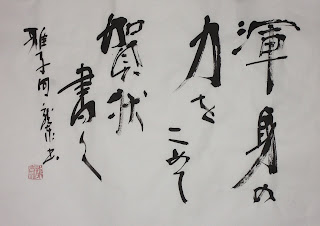 渾身の
力を
こめて
賀状
書く
雅子同